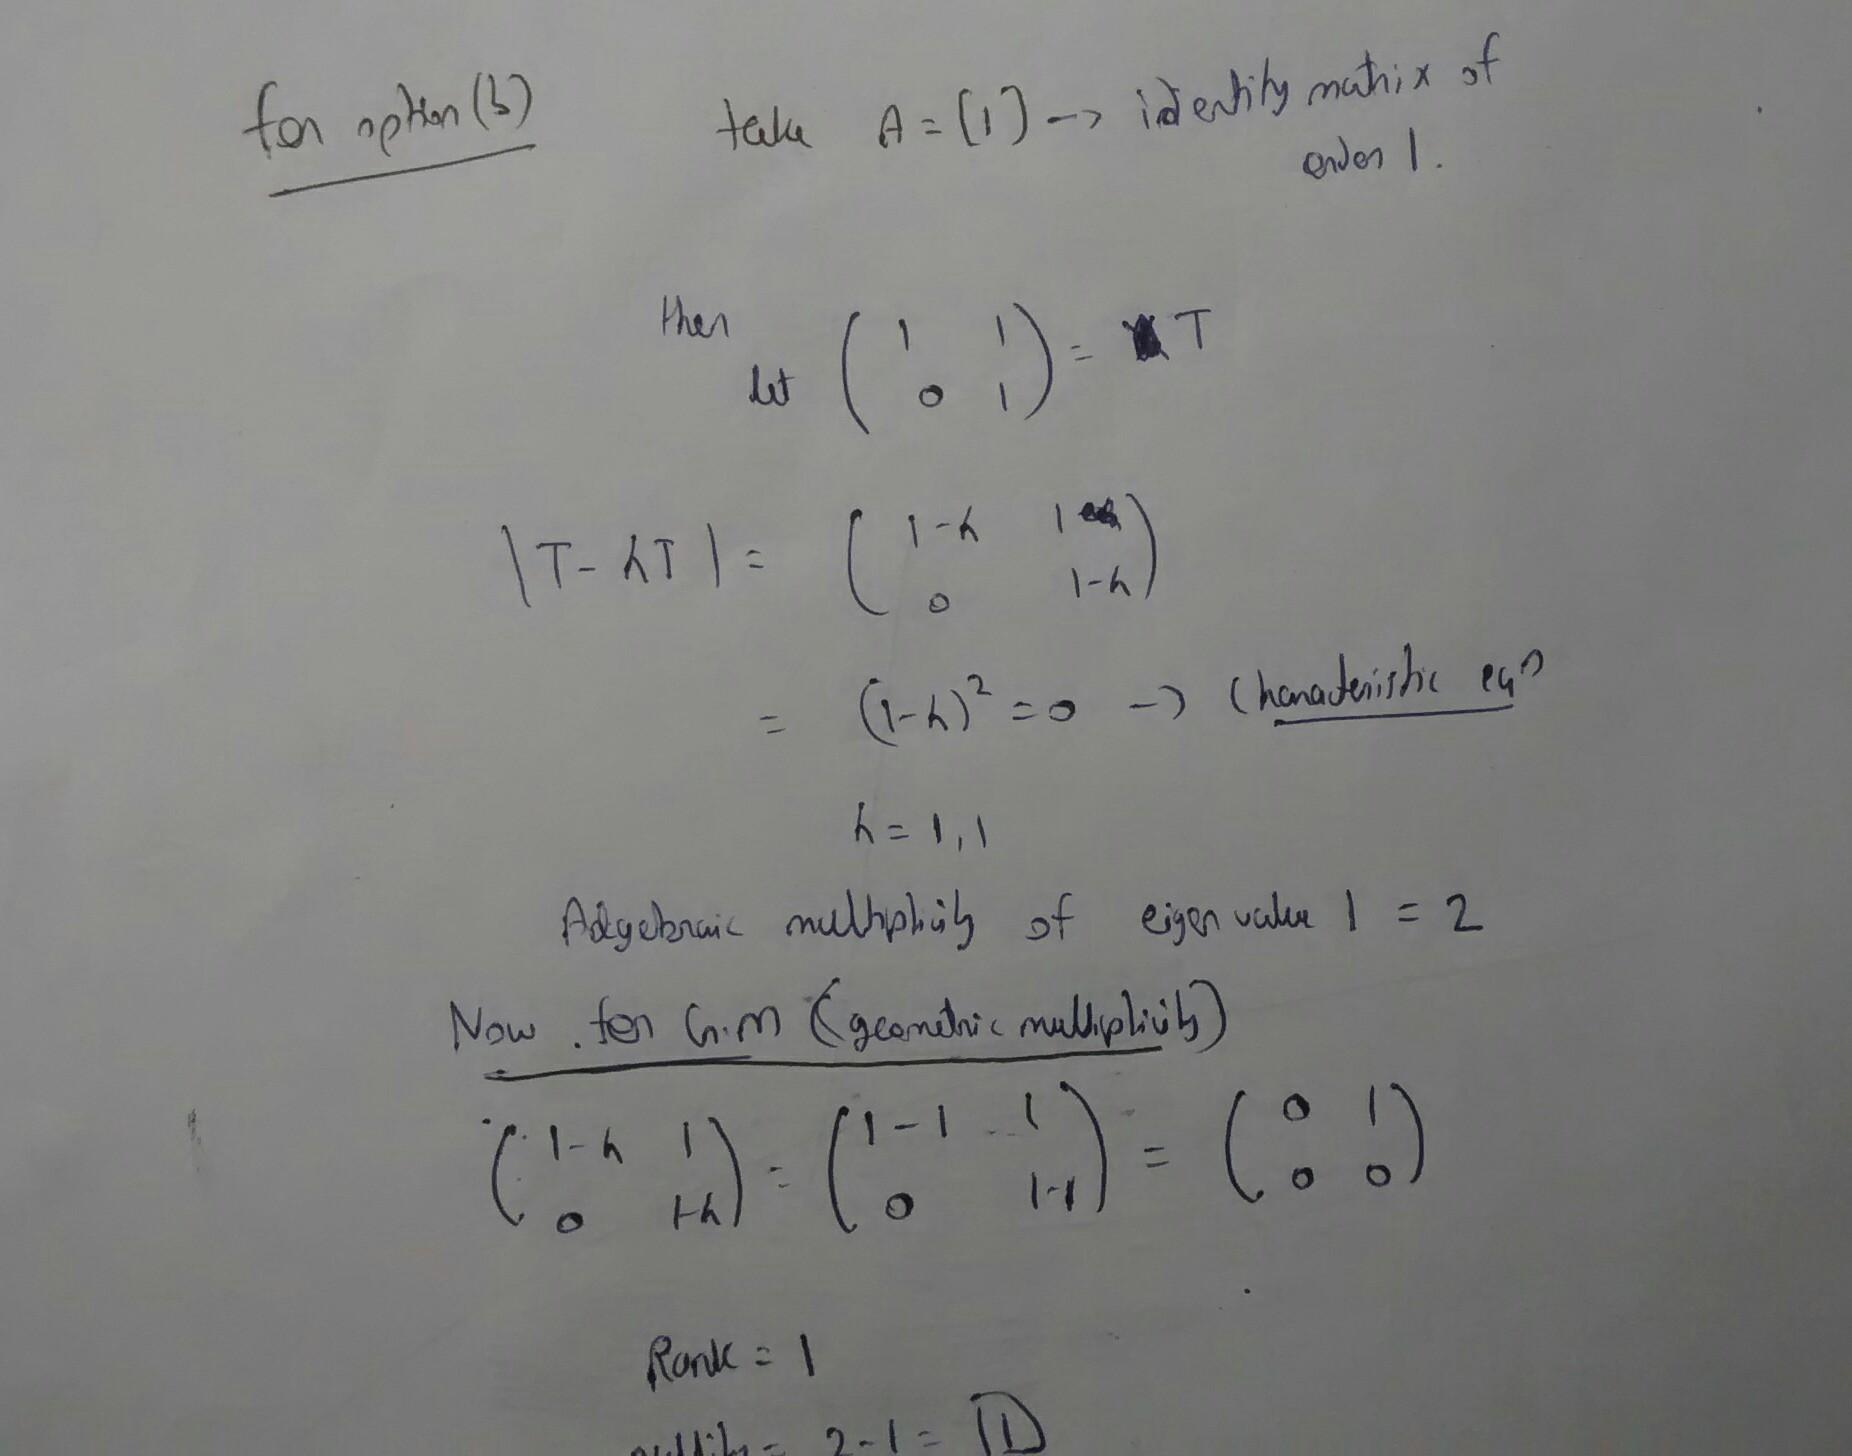 for option (b) take A = [1] -> identity matrix of
order 1.
then
let ( 1 1 ) = T
( 0 1 )
|T - λT| = ( 1-λ 1 )
( 0 1-λ )
= (1-λ)² = 0 -> Characteristic eqn
λ = 1, 1
Algebraic multiplicity of eigen value 1 = 2
Now . for G.M (geometric multiplicity)
( 1-λ 1 ) = ( 1-1 1 ) = ( 0 1 )
( 0 1-λ ) ( 0 1-1 ) ( 0 0 )
Rank = 1
nullity = 2-1 = 1